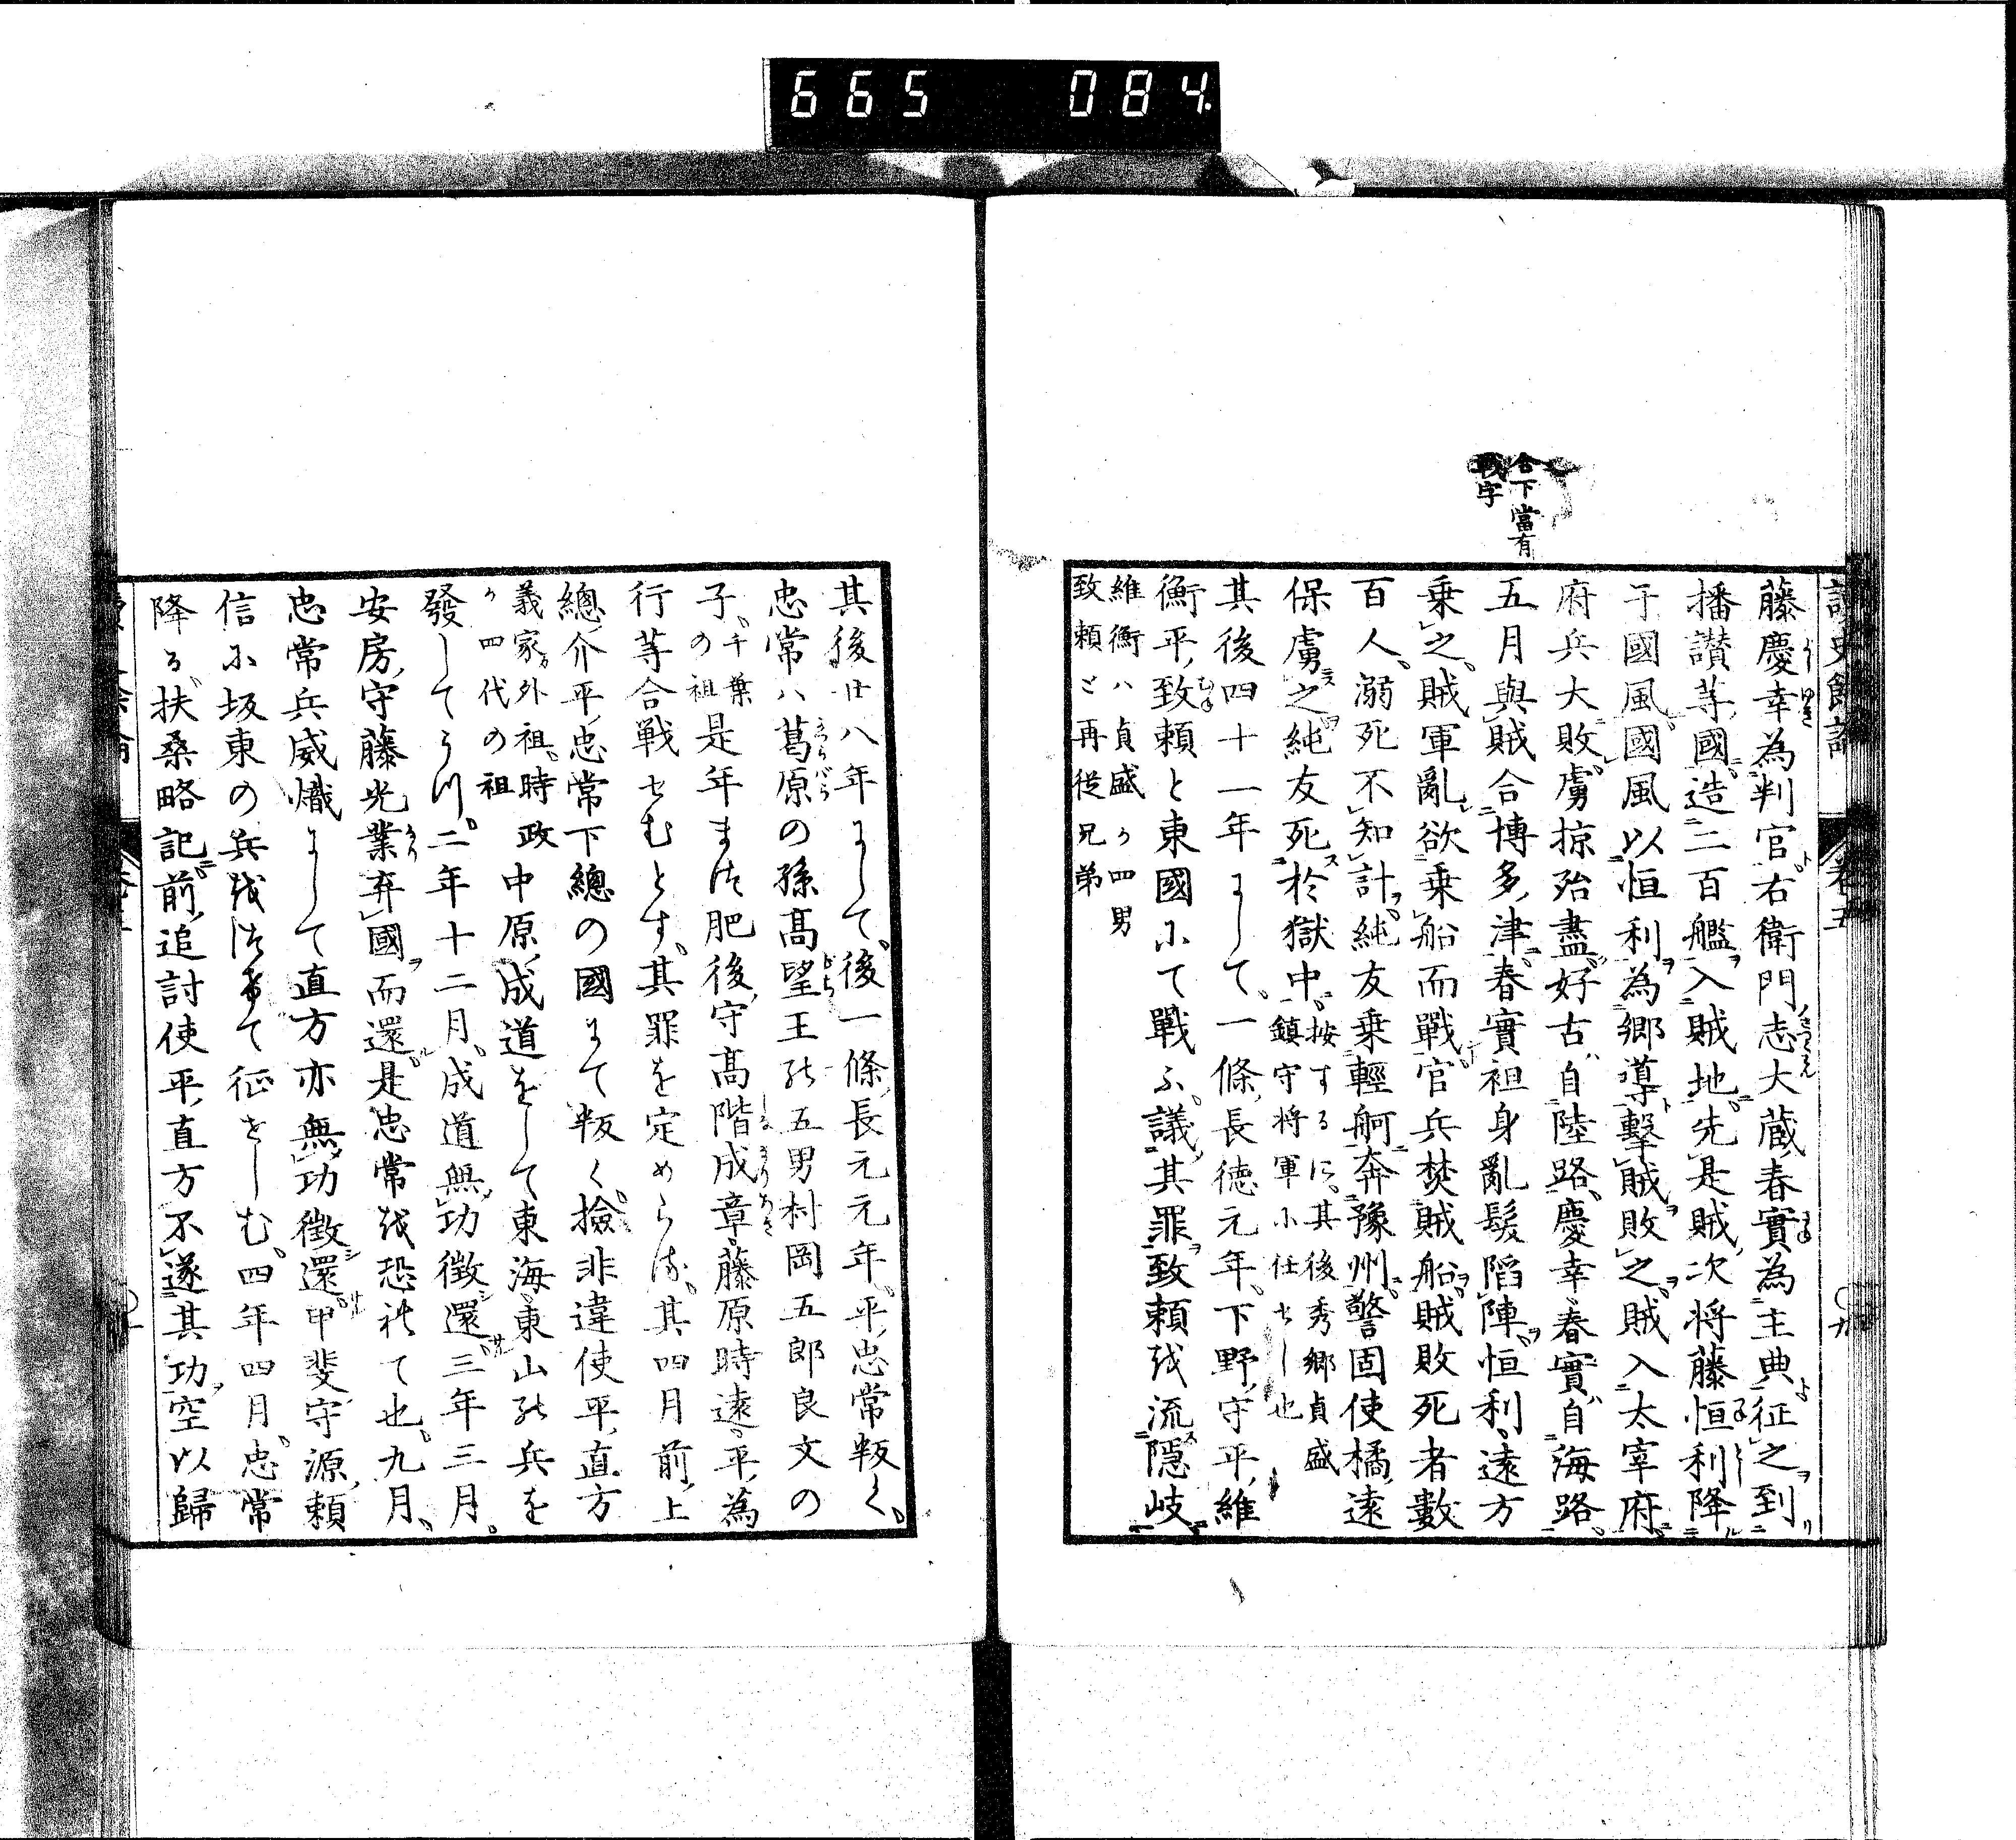 665 084
合下當有
戰字
讀史餘論 卷五
藤慶幸為判官右衛門志大蔵春實為主典征之到
播讃等國造二百艦入賊地先是賊次将藤恒利降
于國風國風以恒利為郷導撃賊敗之賊入太宰府
府兵大敗虜掠殆盡好古自陸路慶幸春實自海路
五月與賊合博多津春實袒身亂髪陷陣恒利遠方
乗之賊軍亂欲乗船而戰官兵焚賊船賊敗死者數
百人溺死不知計純友乗輕舸奔豫州警固使橘遠
保虜之純友死於獄中按するに其後秀郷貞盛
鎮守将軍に任せし也
其後四十一年にして一條長徳元年下野守平維
衡平致頼と東國にて戰ふ議其罪致頼を流隠岐
維衡ハ貞盛か四男
致頼と再従兄弟
其後廿八年にして後一條長元元年平忠常叛く
忠常ハ葛原の孫髙望王の五男村岡五郎良文の
子千葉の祖是年まて肥後守髙階成章藤原時遠平為
行等合戦せむとす其罪を定めらる其四月前上
總介平忠常下總の國にて叛く撿非違使平直方
義家外祖時政か四代の祖中原成道をして東海東山の兵を
發してうつ二年十二月成道無功徴還三年三月
安房守藤光業弃國而還是忠常を恐れて也九月
忠常兵威熾にして直方亦無功徴還甲斐守源頼
信に坂東の兵をつけて征せしむ四年四月忠常
降る扶桑略記前追討使平直方不遂其功空以歸